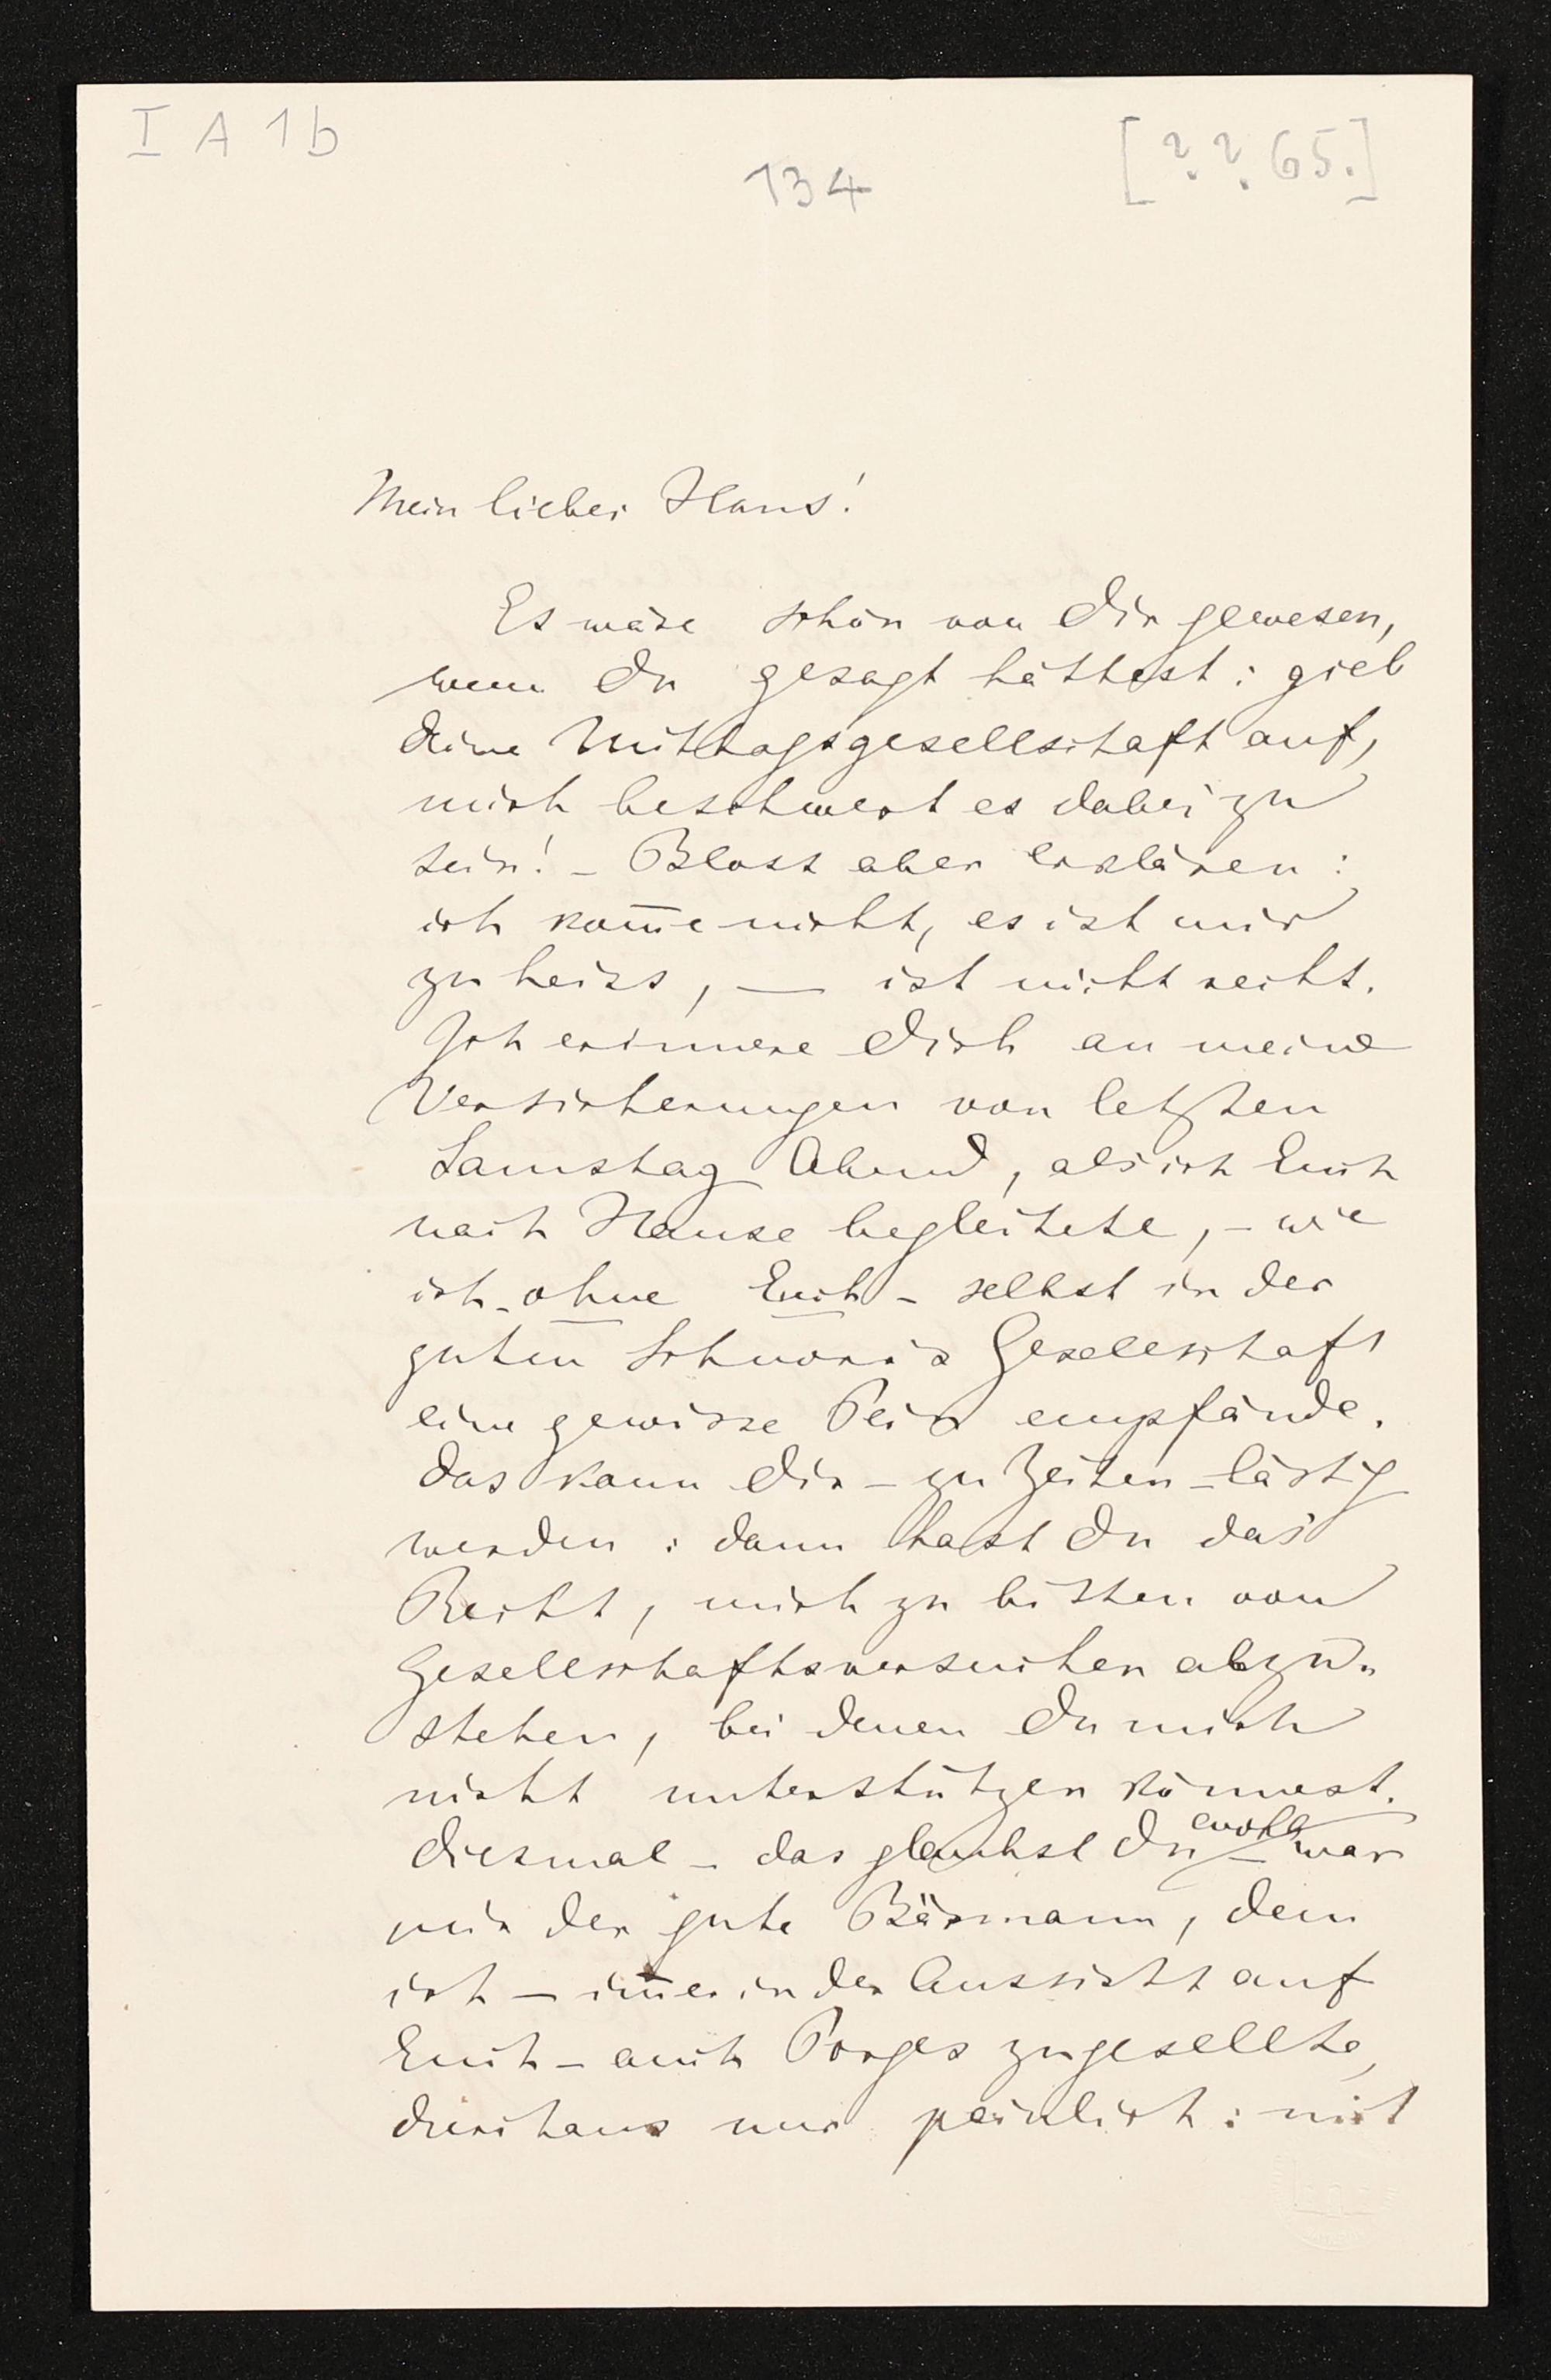 I A 1b
134
[?.?.65.]
Mein lieber Hans!
Es wäre schön von Dir gewesen,
wenn Du gesagt hättest: gieb
deine Mittagsgesellschaft auf,
mich beschwert es dabei zu
sein! – Bloss aber erklären:
ich kom̅e nicht, es ist mir
zu heiss, — ist nicht recht.
Ich erinnere Dich an meine
Versicherungen von letzten
Samstag Abend, als ich Euch
nach Hause begleitete, – wie
ich – ohne Euch – selbst in der
guten Schnorr's Gesellschaft
eine gewisse Pein empfände.
Das kann Dir – zu Zeiten – lästig
werden: dann hast Du das
Recht, mich zu bitten von
Gesellschaftsversuchen abzu-
stehen, bei denen Du mich
nicht unterstützen könnest.
Diesmal – das glaubst Du wohl – war
mir der gute Bärmann, dem
ich – im̅er in der Aussicht auf
Euch – auch Porges zugesellte,
durchaus nur peinlich: mit